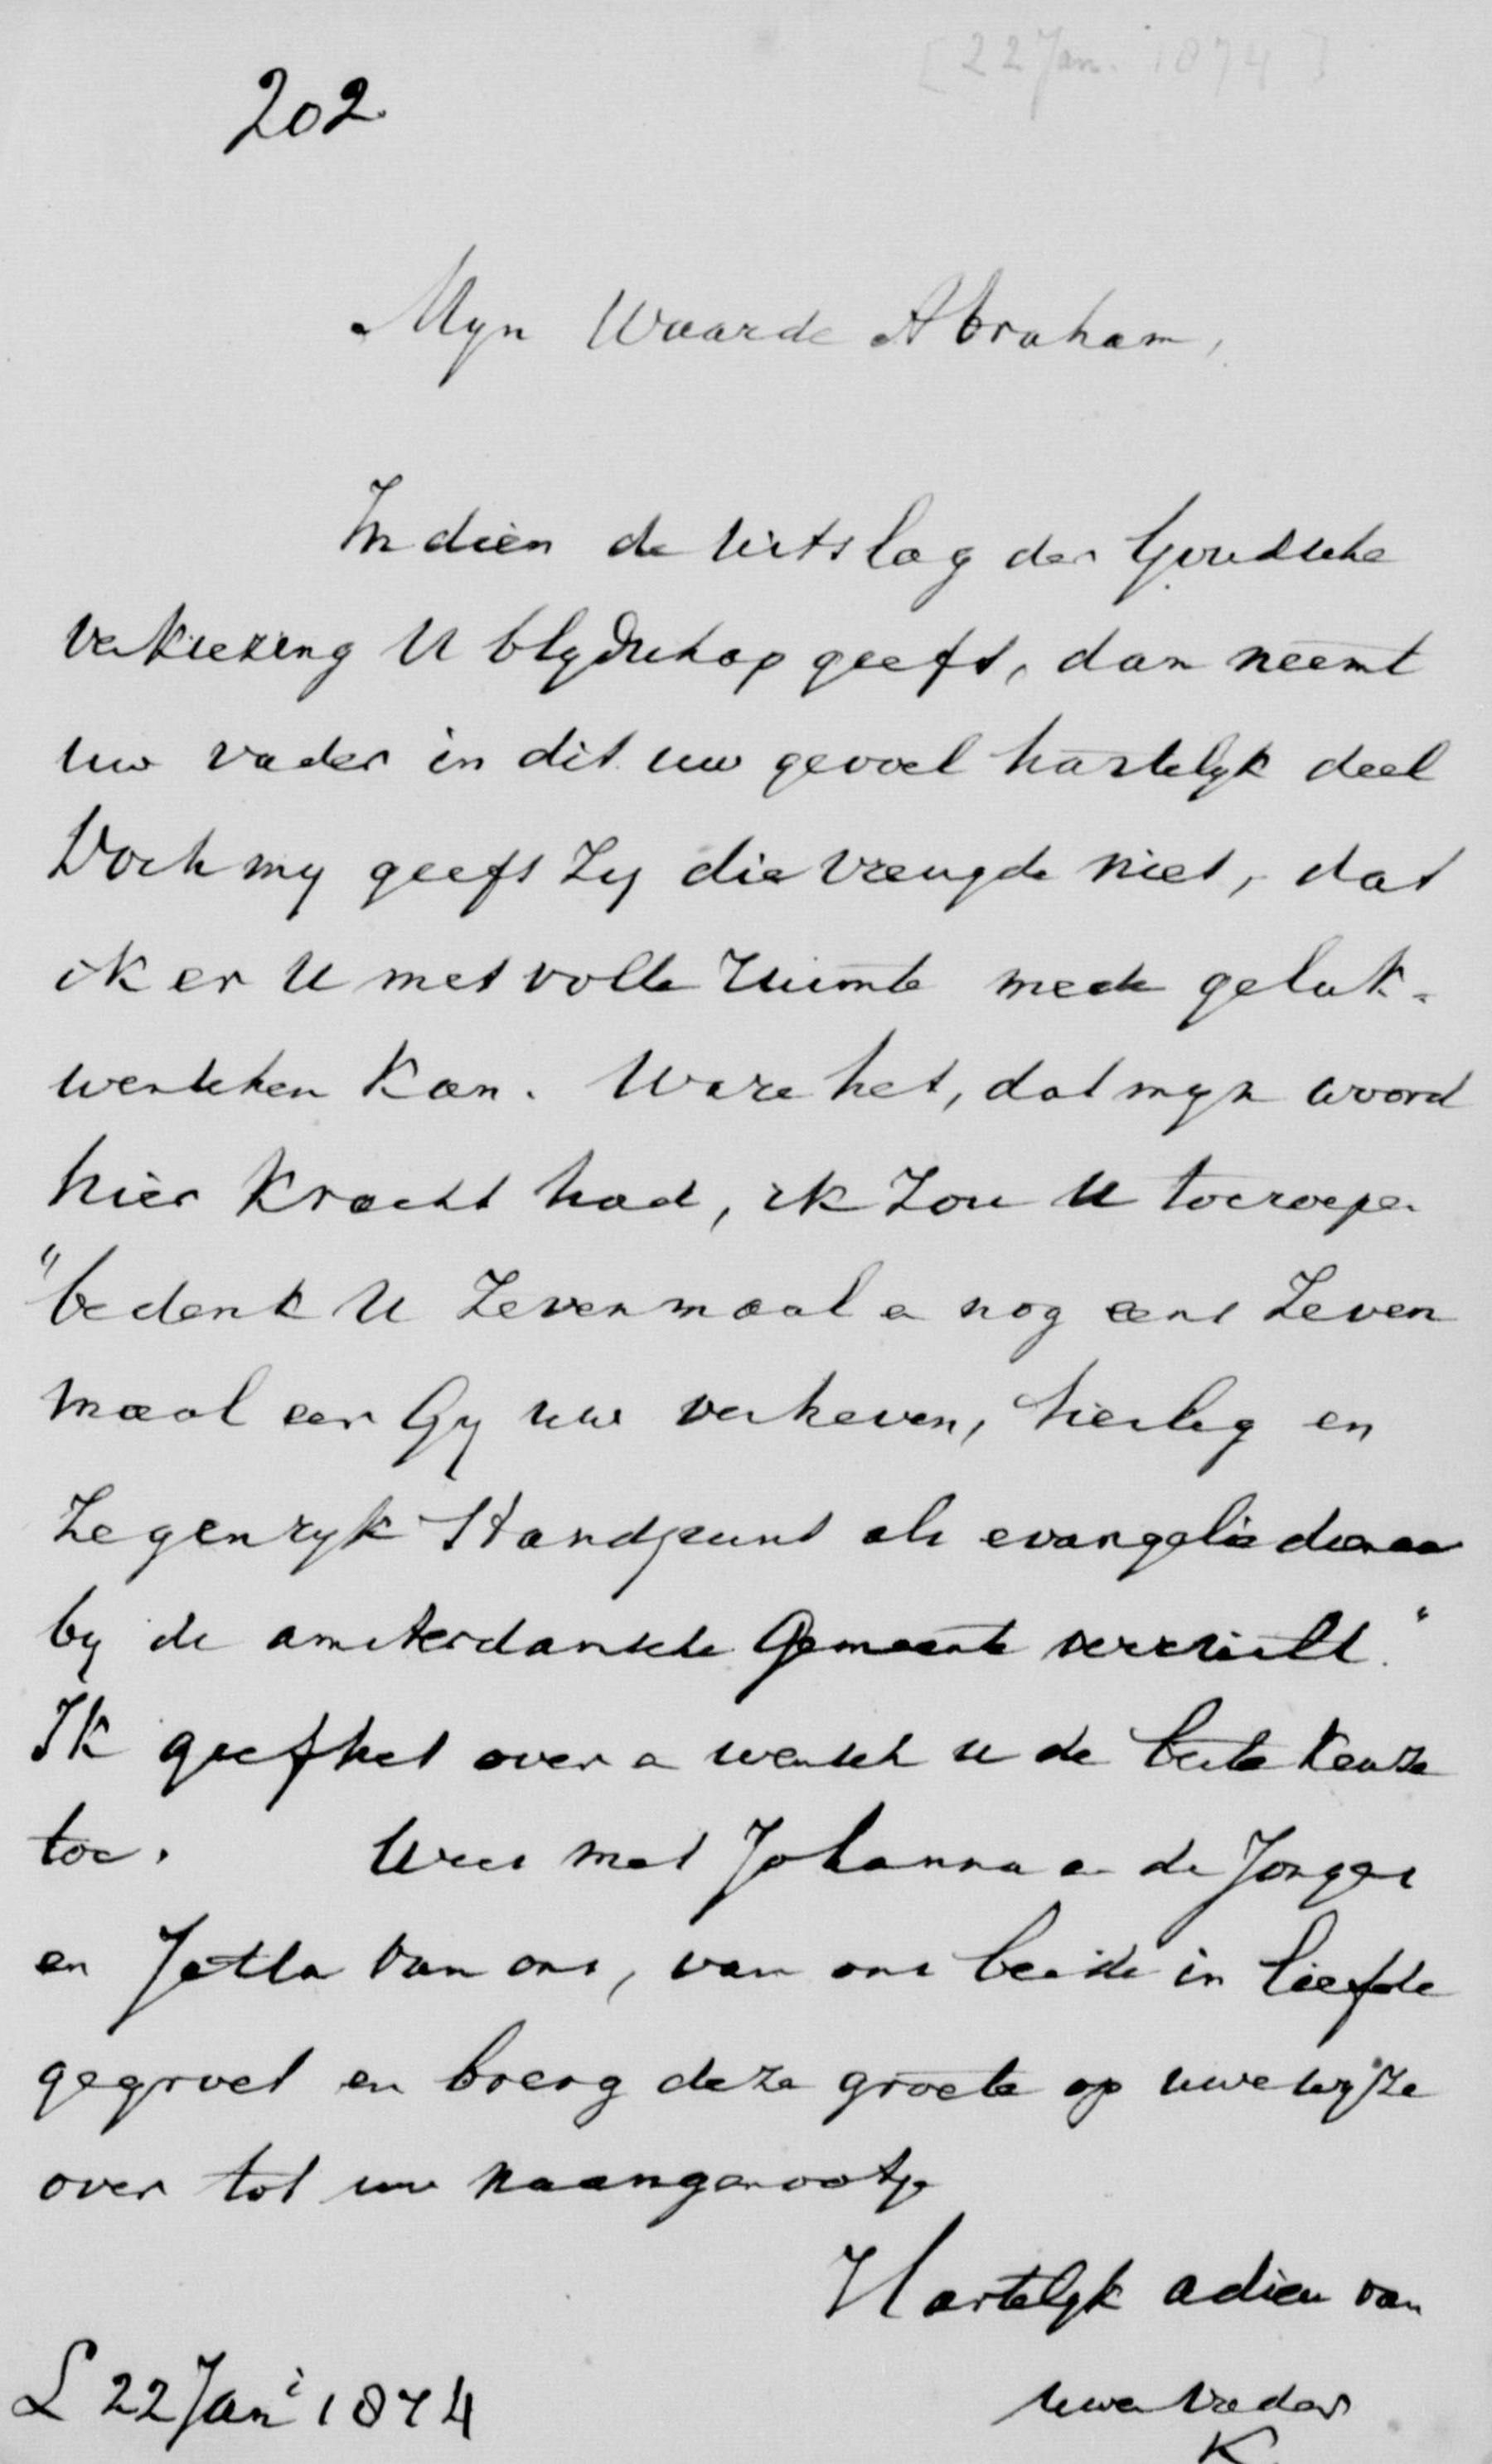 [22 Jan. 1874]
202
Myn Waarde Abraham,
Indien de uitslag der Goudsche
verkiezing U blydschap geeft, dan neemt
uw vader in dit uw gevoel hartelyk deel
Doch my geeft zy die vreugde niet, dat
ik er U met volle ruimte mede geluk-
wenschen kan. Ware het, dat myn woord
hier kracht had, ik zou U toeroepen
"bedenk U zevenmaal en nog eens zeven
maal eer Gy uw verheven, heilig en
zegenryk standpunt als evangeliedienaar
by de amsterdamsche Gemeente verruilt."
Ik geef het over en wensch u de beste keuze
toe. Wees met Johanna en de Jonges
en Jetta van ons, van ons beide in liefde
gegroet en breng deze groete op uwe wyze
over tot uw naamgenootje
Hartelyk adieu van
uwen vader
K
L 22 Jani 1874